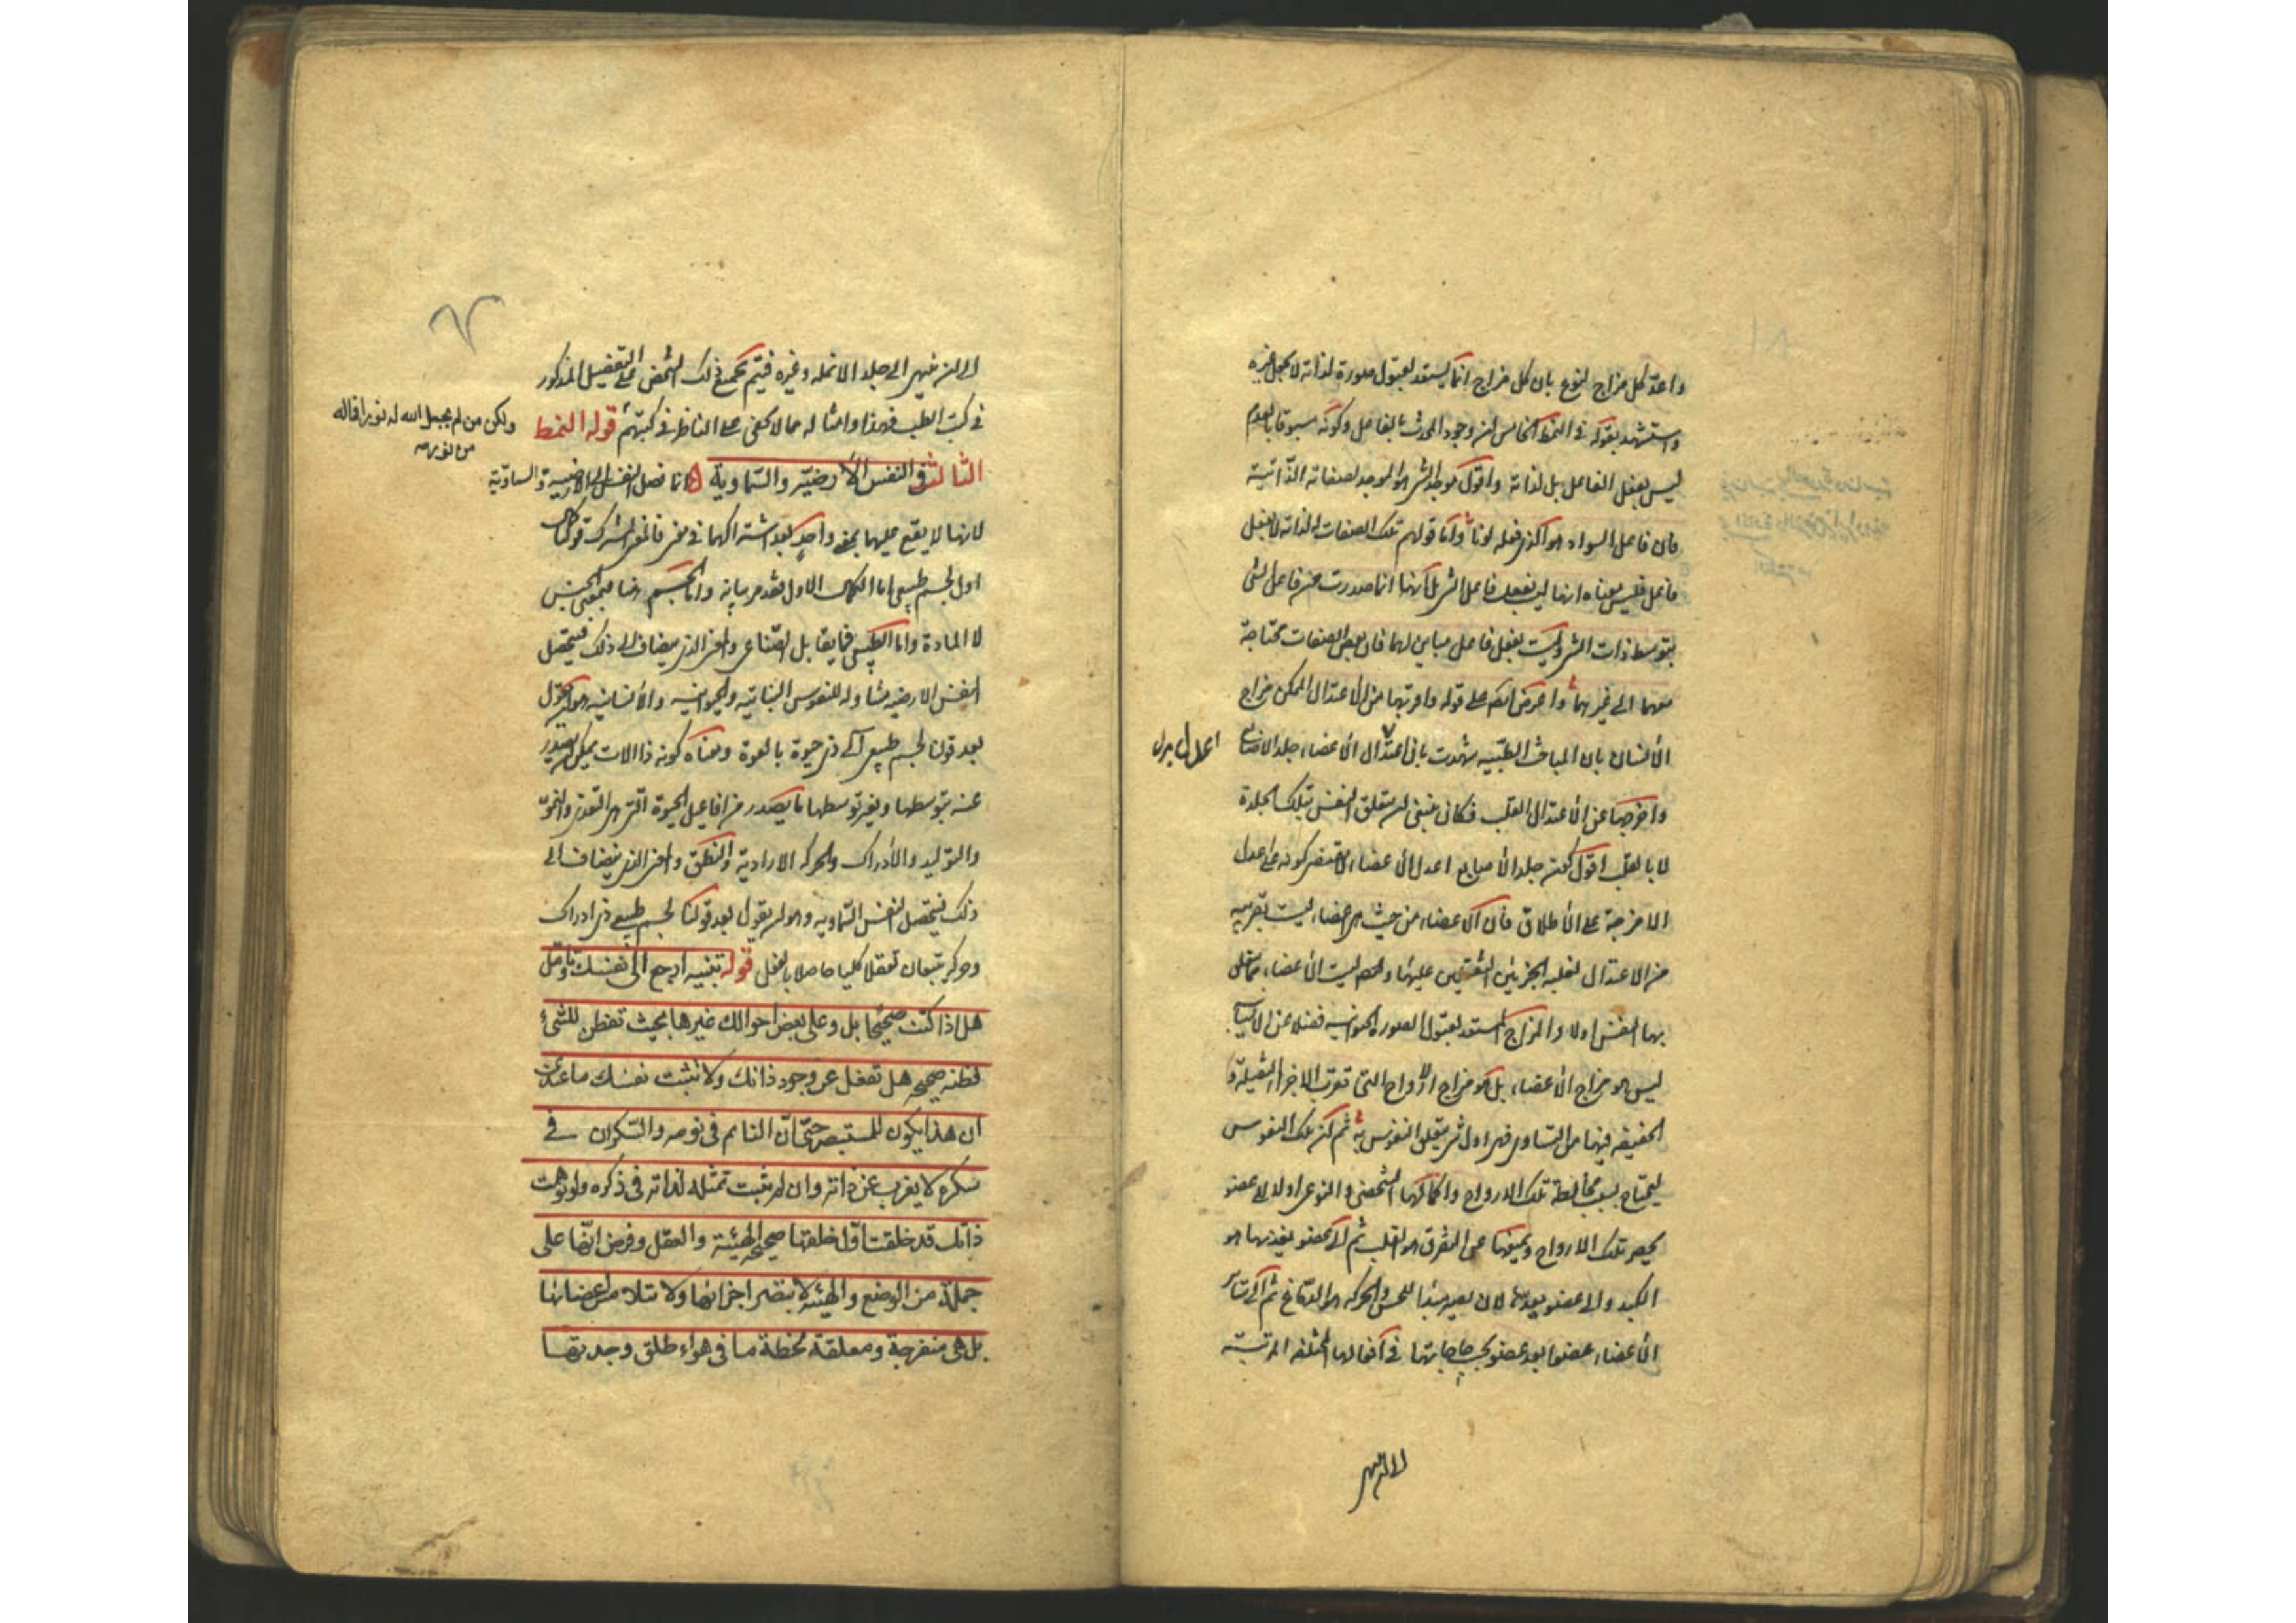 واعدّ كل مزاج لنوع بان كل مزاج انما يستعد لقبول صورة لذاته لا بجعل غيره
واستشهد بقوله فى النمط الخامس ان وجود المحدث بالفاعل وكونه مسبوقا بالعدم
ليس بفعل الفاعل بل لذاته واقول موجد الشىء هو الموجد لصفاته الذاتية
فان فاعل السواد هو الذى فعله لونا واما قولهم تلك الصفات له لذاته لا بفعل
فاعل فليس معناه انها ليس بفعل فاعل الشىء بل انها انما صدرت عن فاعل الشىء
بتوسط ذات الشىء وليست بفعل فاعل مباين لهما فان بعض الصفات محتاجة
معهما الى غيرهما واعترض ايضا على قوله واقربها من الاعتدال الممكن مزاج
الانسان بان المباحث الطبية شهدت بان اعدل الاعضاء جلد الاصابع
واخرجها عن الاعتدال القلب فكان ينبغى ان يتعلق النفس بتلك الجلدة
لا بالقلب اقول كون جلد الاصابع اعدل الاعضاء لا يقتضى كونه اعدل
الامزجة على الاطلاق فان الاعضاء من حيث هى اعضاء ليست بقريبه
من الاعتدال لغلبة الجزئين الثقيلين عليها وايضا ليست الاعضاء مما يتعلق
بها النفس اولا والمزاج المستعد لقبول الصورة الحيوانيه فضلا عن الانسانية
ليس هو مزاج الاعضاء بل هو مزاج الارواح التى تقرب الاجزاء الثقيلة و
الخفيفه فيها من التساوى فهى اول شىء يتعلق النفوس به ثم ان تلك النفوس
يحتاج بسبب محافظة تلك الارواح واكمالها الشخصى والنوعى اولا الى عضو
يحصر تلك الارواح ويمنعها عن التفرق هو القلب ثم الى عضو يغذيها هو
الكبد والى عضو يعدها لان يصير مبدأ للحس والحركه هو الدماغ ثم الى سائر
الاعضاء عضوا بعد عضو بحسب حاجاتها فى افعالها المختلفه المرتبة
الى ان ينتهى
الى ان ينتهى الى جلد الانمله وغيره فيتم بجميع ذلك الشخص على التفصيل المذكور
فى كتب الطب فهذا وامثاله مما لا يخفى على الناظر فى كتبهم قوله النمط
ولكن من لم يجعل الله له نورا فماله
من نور
الثالث فى النفس الارضية والسماوية انما فصل النفس الى الارضية والسماوية
لانها لا يقع عليهما بمعنى واحد بعد اشتراكهما فى معنى فالمعنى المشترك قولنا كمال
اول لجسم طبيعى اما الكمال الاول فقد مر بيانه واما الجسم هنا فبمعنى الجنس
لا المادة واما الطبيعى فما يقابل الصناعى والمعنى الذى يضاف الى ذلك فيتحصل
النفس الارضيه متناوله للنفوس النباتيه والحيوانيه والانسانيه هو ان نقول
بعد قولنا لجسم طبيعى آلى ذى حيوة بالقوة ومعناه كونه ذا الات يمكن ان يصدر
عنه بتوسطها وبغير توسطها ما يصدر من افاعيل الحيوة التى هى التغذى والنمو
والتوليد والادراك والحركه الارادية والنطق والمعنى الذى يضاف الى
ذلك فيتحصل النفس السماويه هو ان يقول بعد قولنا لجسم طبيعى ذى ادراك
وحركة يتبعان تعقلا كليا حاصلا بالفعل قوله تنبيه ارجع الى نفسك وتامل
هل اذا كنت صحيحا بل وعلى بعض احوالك غيرها بحيث تفطن للشىء
فطنه صحيحه هل تغفل عن وجود ذاتك ولا تثبت نفسك ما عندى
ان هذا يكون للمستبصر حتى ان النائم فى نومه والسكران فى
سكره لا يغرب عن ذاته وان لم يثبت تمثله لذاته فى ذكره ولو توهمت
ذاتك قد خلقت اول خلقتها صحيحة الهيئة والعقل وفرض انها على
جملة من الوضع والهيئه لا تبصر اجزائها ولا تتلامس اعضائها
بل هى منفرجة ومعلقة لحظة ما فى هواء طلق وجدتها